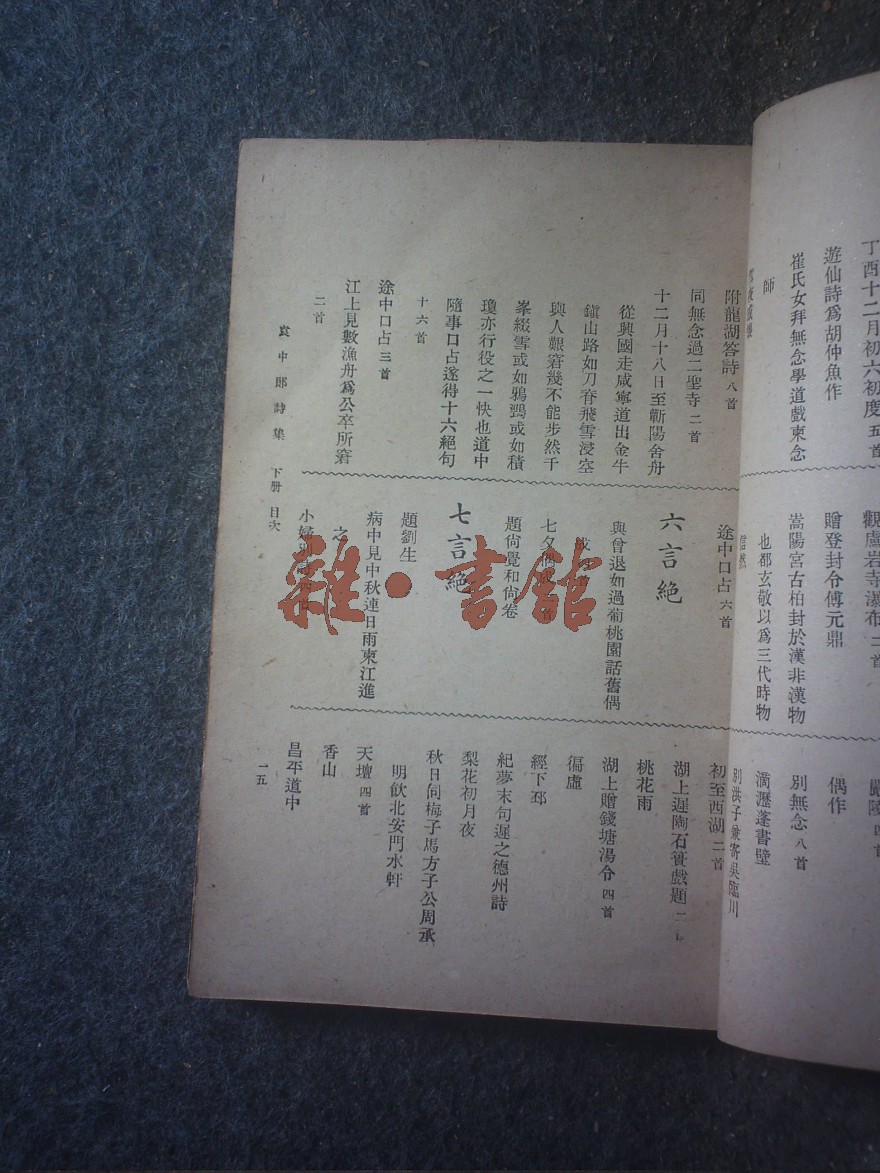 丁酉十二月初六初度 五首
遊仙詩爲胡仲魚作
崔氏女拜無念學道戲柬念
師
附龍湖答詩 八首
同無念過二聖寺 二首
十二月十八日至蘄陽舍舟
從興國走咸寧道出金牛
鎭山路如刀脊飛雪浸空
與人艱窘幾不能步然千
峯綴雪或如鴉鵶或如積
瓊亦行役之一快也道中
隨事口占遂得十六絕句
十六首
途中口占 三首
江上見數漁舟爲公卒所窘
二首
觀盧岩寺瀑布 二首
贈登封令傅元鼎
嵩陽宮古柏封於漢非漢物
也都玄敬以爲三代時物
信然
途中口占 六首
六言絕
與曾退如過葡桃園話舊偶
七夕
題尙覺和尙卷
七言絕
題劉生
病中見中秋連日雨柬江進
之
小婦別
嚴陵 四首
偶作
別無念 八首
滴瀝蓬書壁
別洪子兼寄吳臨川
初至西湖 二首
湖上遲陶石簣戲題 二
桃花雨
湖上贈錢塘湯令 四首
偪虛
經下邳
紀夢末句遲之德州詩
梨花初月夜
秋日同梅子馬方子公周承
明飲北安門水軒
天壇 四首
香山
昌平道中
袁中郎詩集 下册 目次
一五
雜·書館